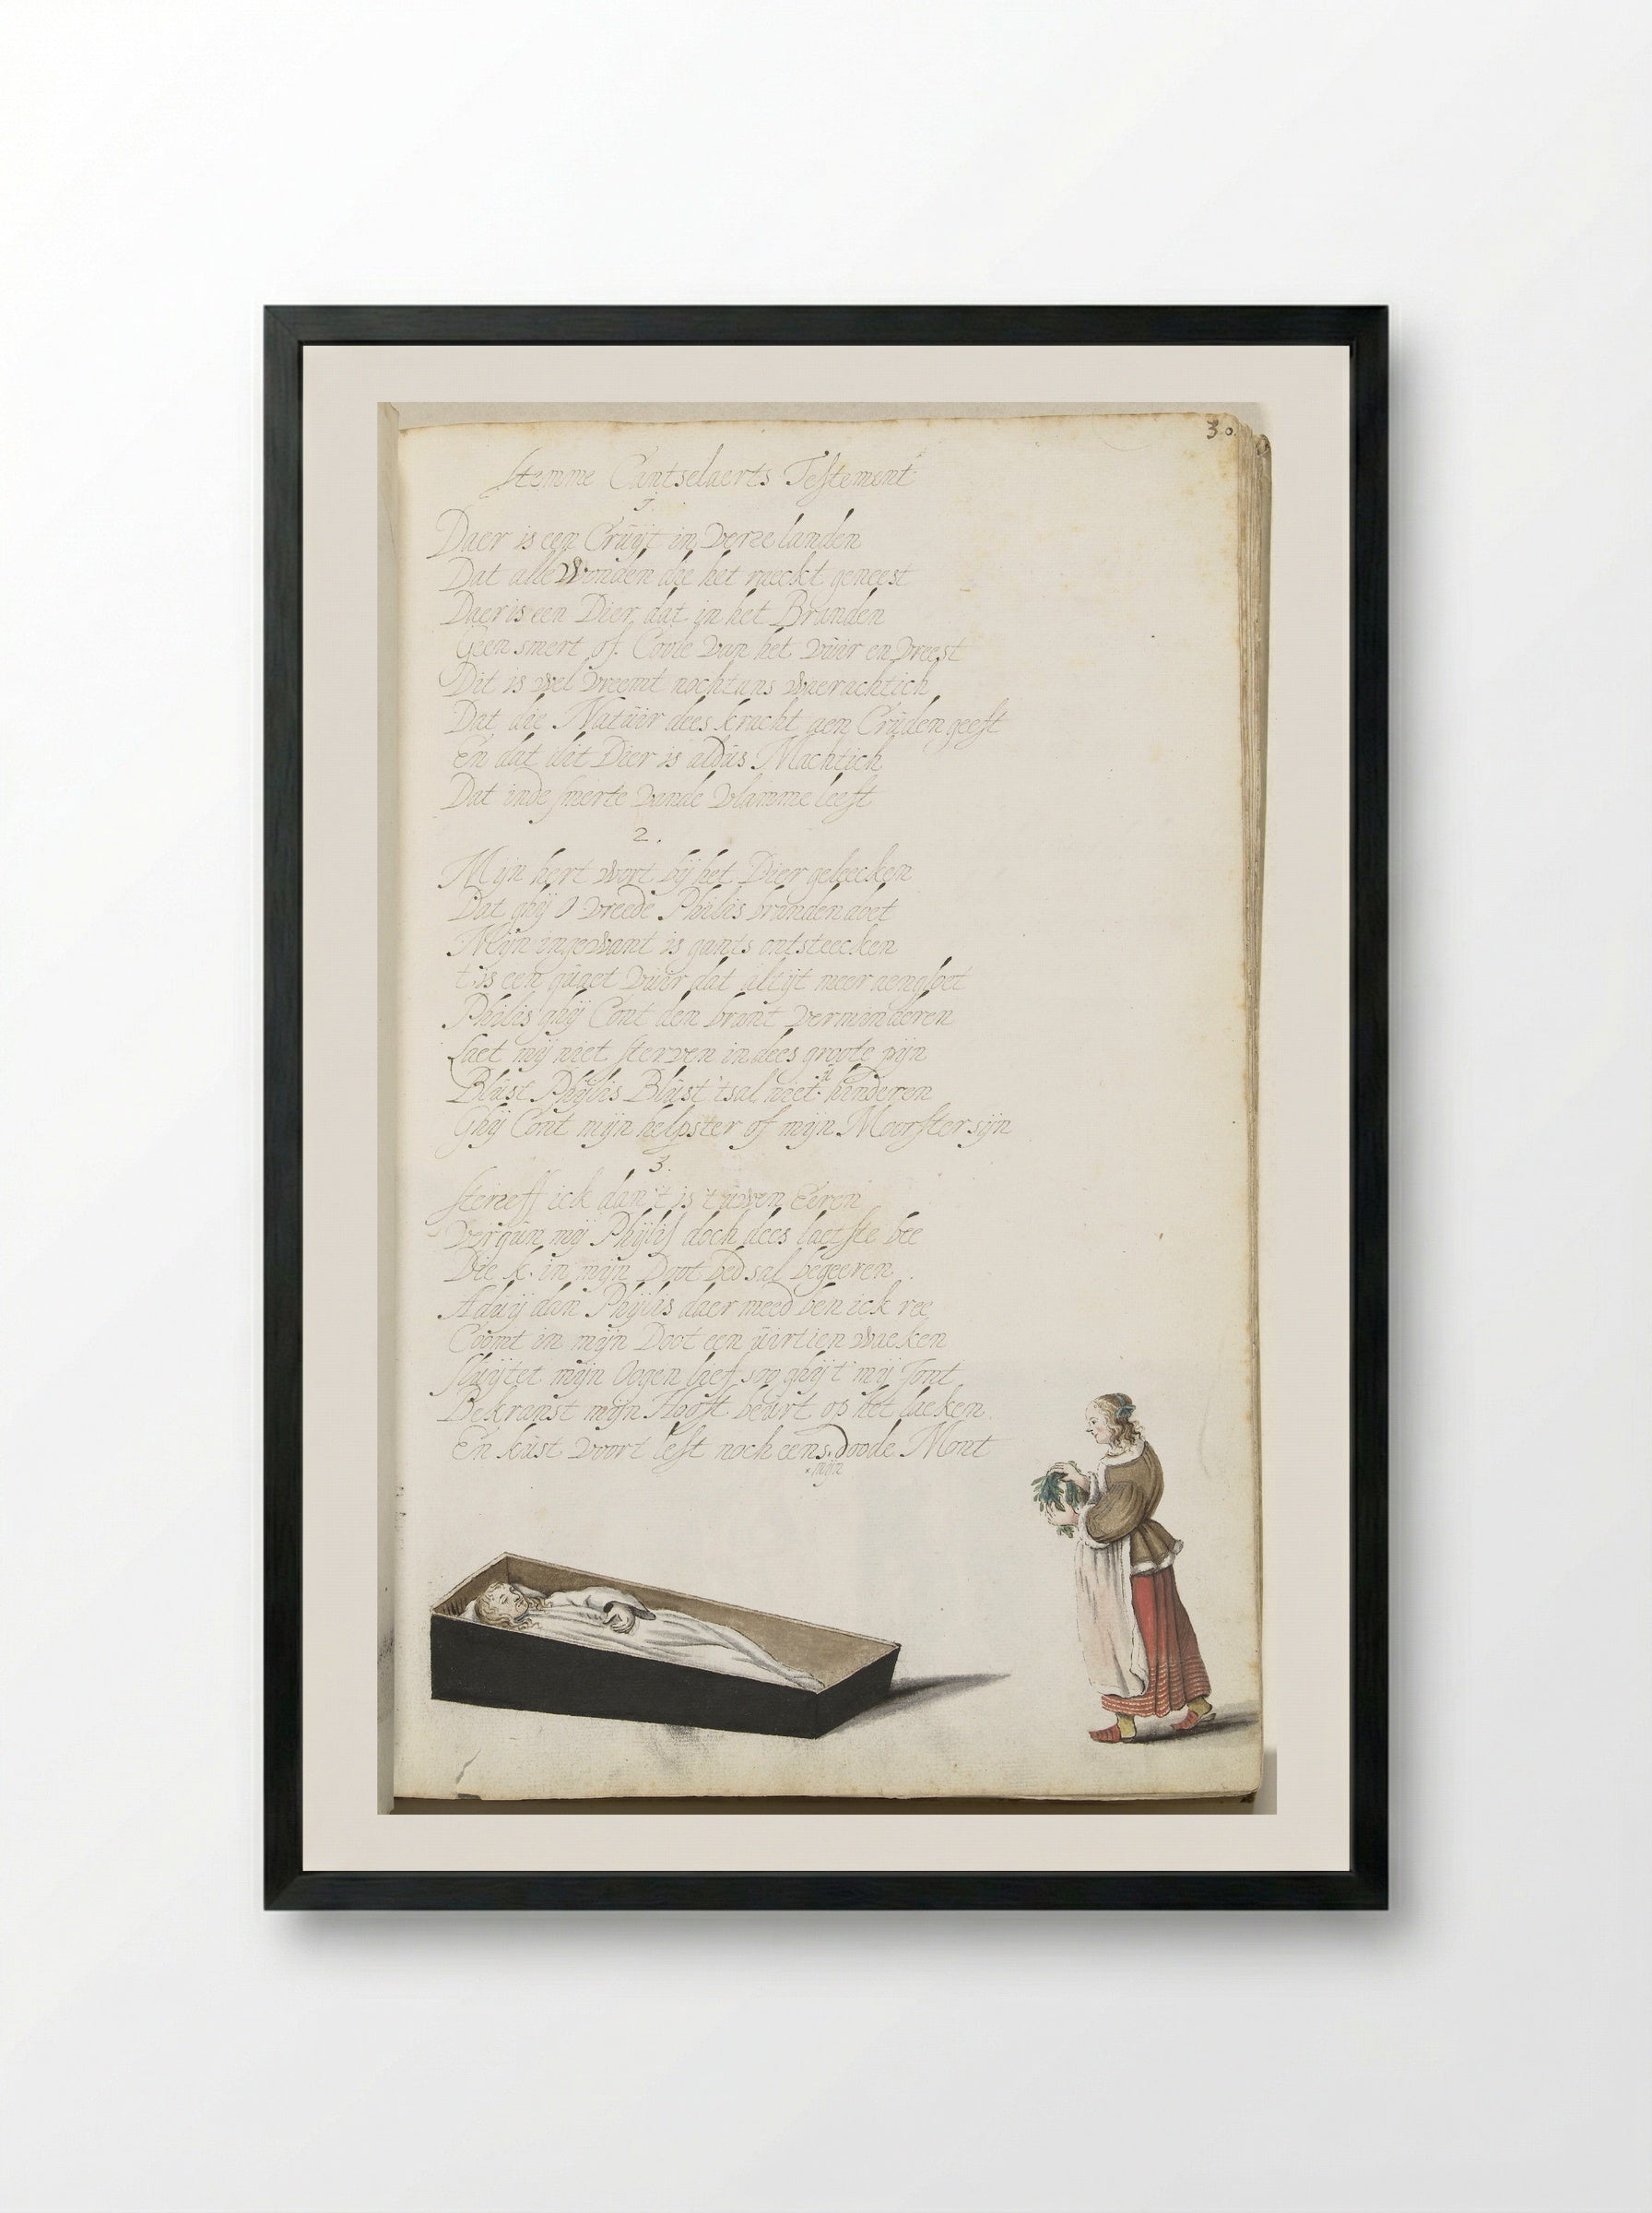 30.
Stemme Cantselaerts Testement
1.
Daer is een Cruÿt in verre landen
Dat alle Wonden die het raeckt geneest
Daer is een Dier dat in het Branden
Geen smert of Coole van het vuùr en vreest
Dit is wel vreemt nochtans waerachtich
Dat die Natuùr dees kracht aen Crùden geeft
En dat dit Dier is aldùs Machtich
Dat inde smerte vande vlamme leeft
2.
Mijn hert wort bÿ het Dier geleecken
Dat ghÿ O vreede Philis branden doet
Mijn ingewant is gants ontsteecken
t is een qùaet vuùr dat altijt meer aengloet
Philis ghÿ Cont den brant verminderen
Laet mÿ niet sterven in dees groote pijn
Blùst Phÿlis Blùst tsal niet hinderen
Ghÿ Cont mijn helpster of mijn Moorster sijn
3.
Sterreff ick dan t is t ùwen Eeren
Vergùn mÿ Phÿlis doch dees laetste bee
Die k in mijn Doot bed sal begeeren
Adùÿ dan Phÿlis daer meed ben ick ree
Coomt in mijn Doot een ùirtien waeken
Slùÿtet mijn Oogen loef soo ghÿ t mÿ Jont
Bekranst mijn Hooft beùrt op het laeken
En kùst voort lest noch eens doode Mont
mijn